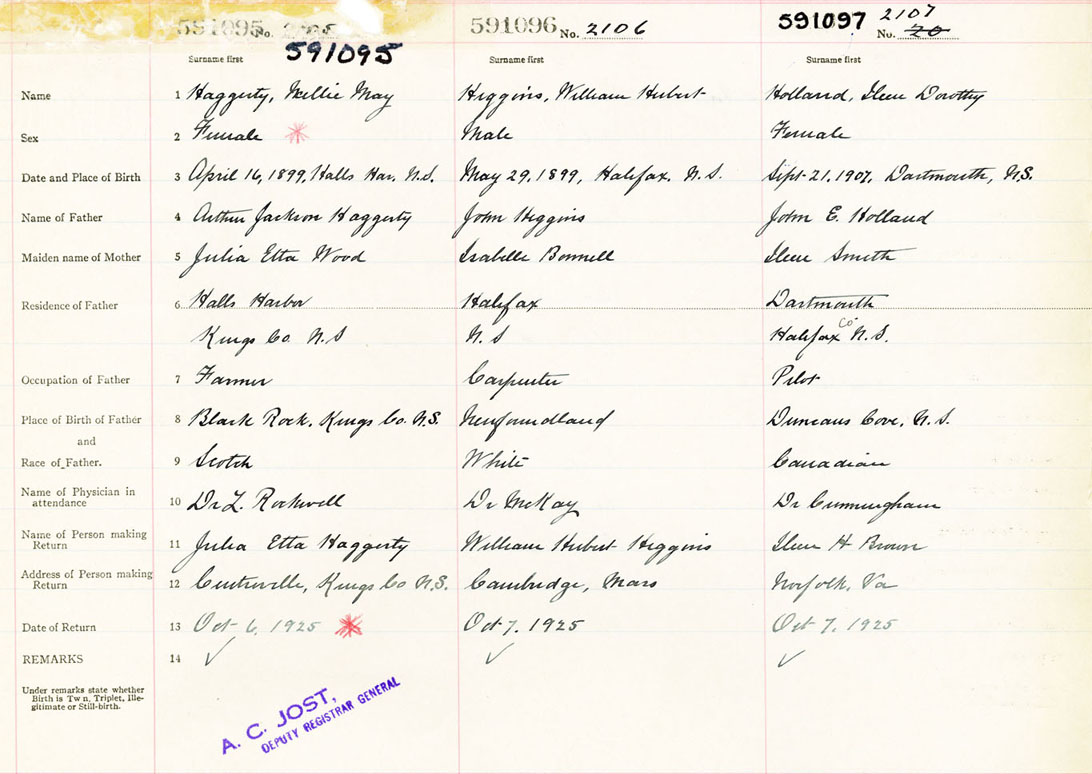 591095 No. 2105 591096 No. 2106 591097 No. 20 2107
591095
Surname first Surname first Surname first
Name 1 Haggerty, Nellie May Higgins, William Hubert Holland, Ilene Dorothy
Sex 2 Female Male Female
Date and Place of Birth 3 April 16, 1899, Halls Har. N.S. May 29, 1899, Halifax, N.S. Sept. 21, 1907, Dartmouth, N.S.
Name of Father 4 Arthur Jackson Haggerty John Higgins John E. Holland
Maiden name of Mother 5 Julia Etta Wood Isabelle Bonnell Ilene Smith
Residence of Father 6 Halls Harbor Halifax Dartmouth
Kings Co. N.S N.S Halifax Co N.S.
Occupation of Father 7 Farmer Carpenter Pilot
Place of Birth of Father 8 Black Rock, Kings Co. N.S. Newfoundland Duncans Cove, N.S.
and
Race of Father. 9 Scotch White Canadian
Name of Physician in
attendance 10 Dr Rockwell Dr McKay Dr Cunningham
Name of Person making
Return 11 Julia Etta Haggerty William Hubert Higgins Ilene H Brown
Address of Person making
Return 12 Centreville, Kings Co N.S. Cambridge, Mass Norfolk, Va
Date of Return 13 Oct 6, 1925 Oct 7, 1925 Oct 7, 1925
REMARKS 14 ✓ ✓ ✓
Under remarks state whether
Birth is Tw n, Triplet, Ille-
gitimate or Still-birth.
A. C. JOST,
DEPUTY REGISTRAR GENERAL